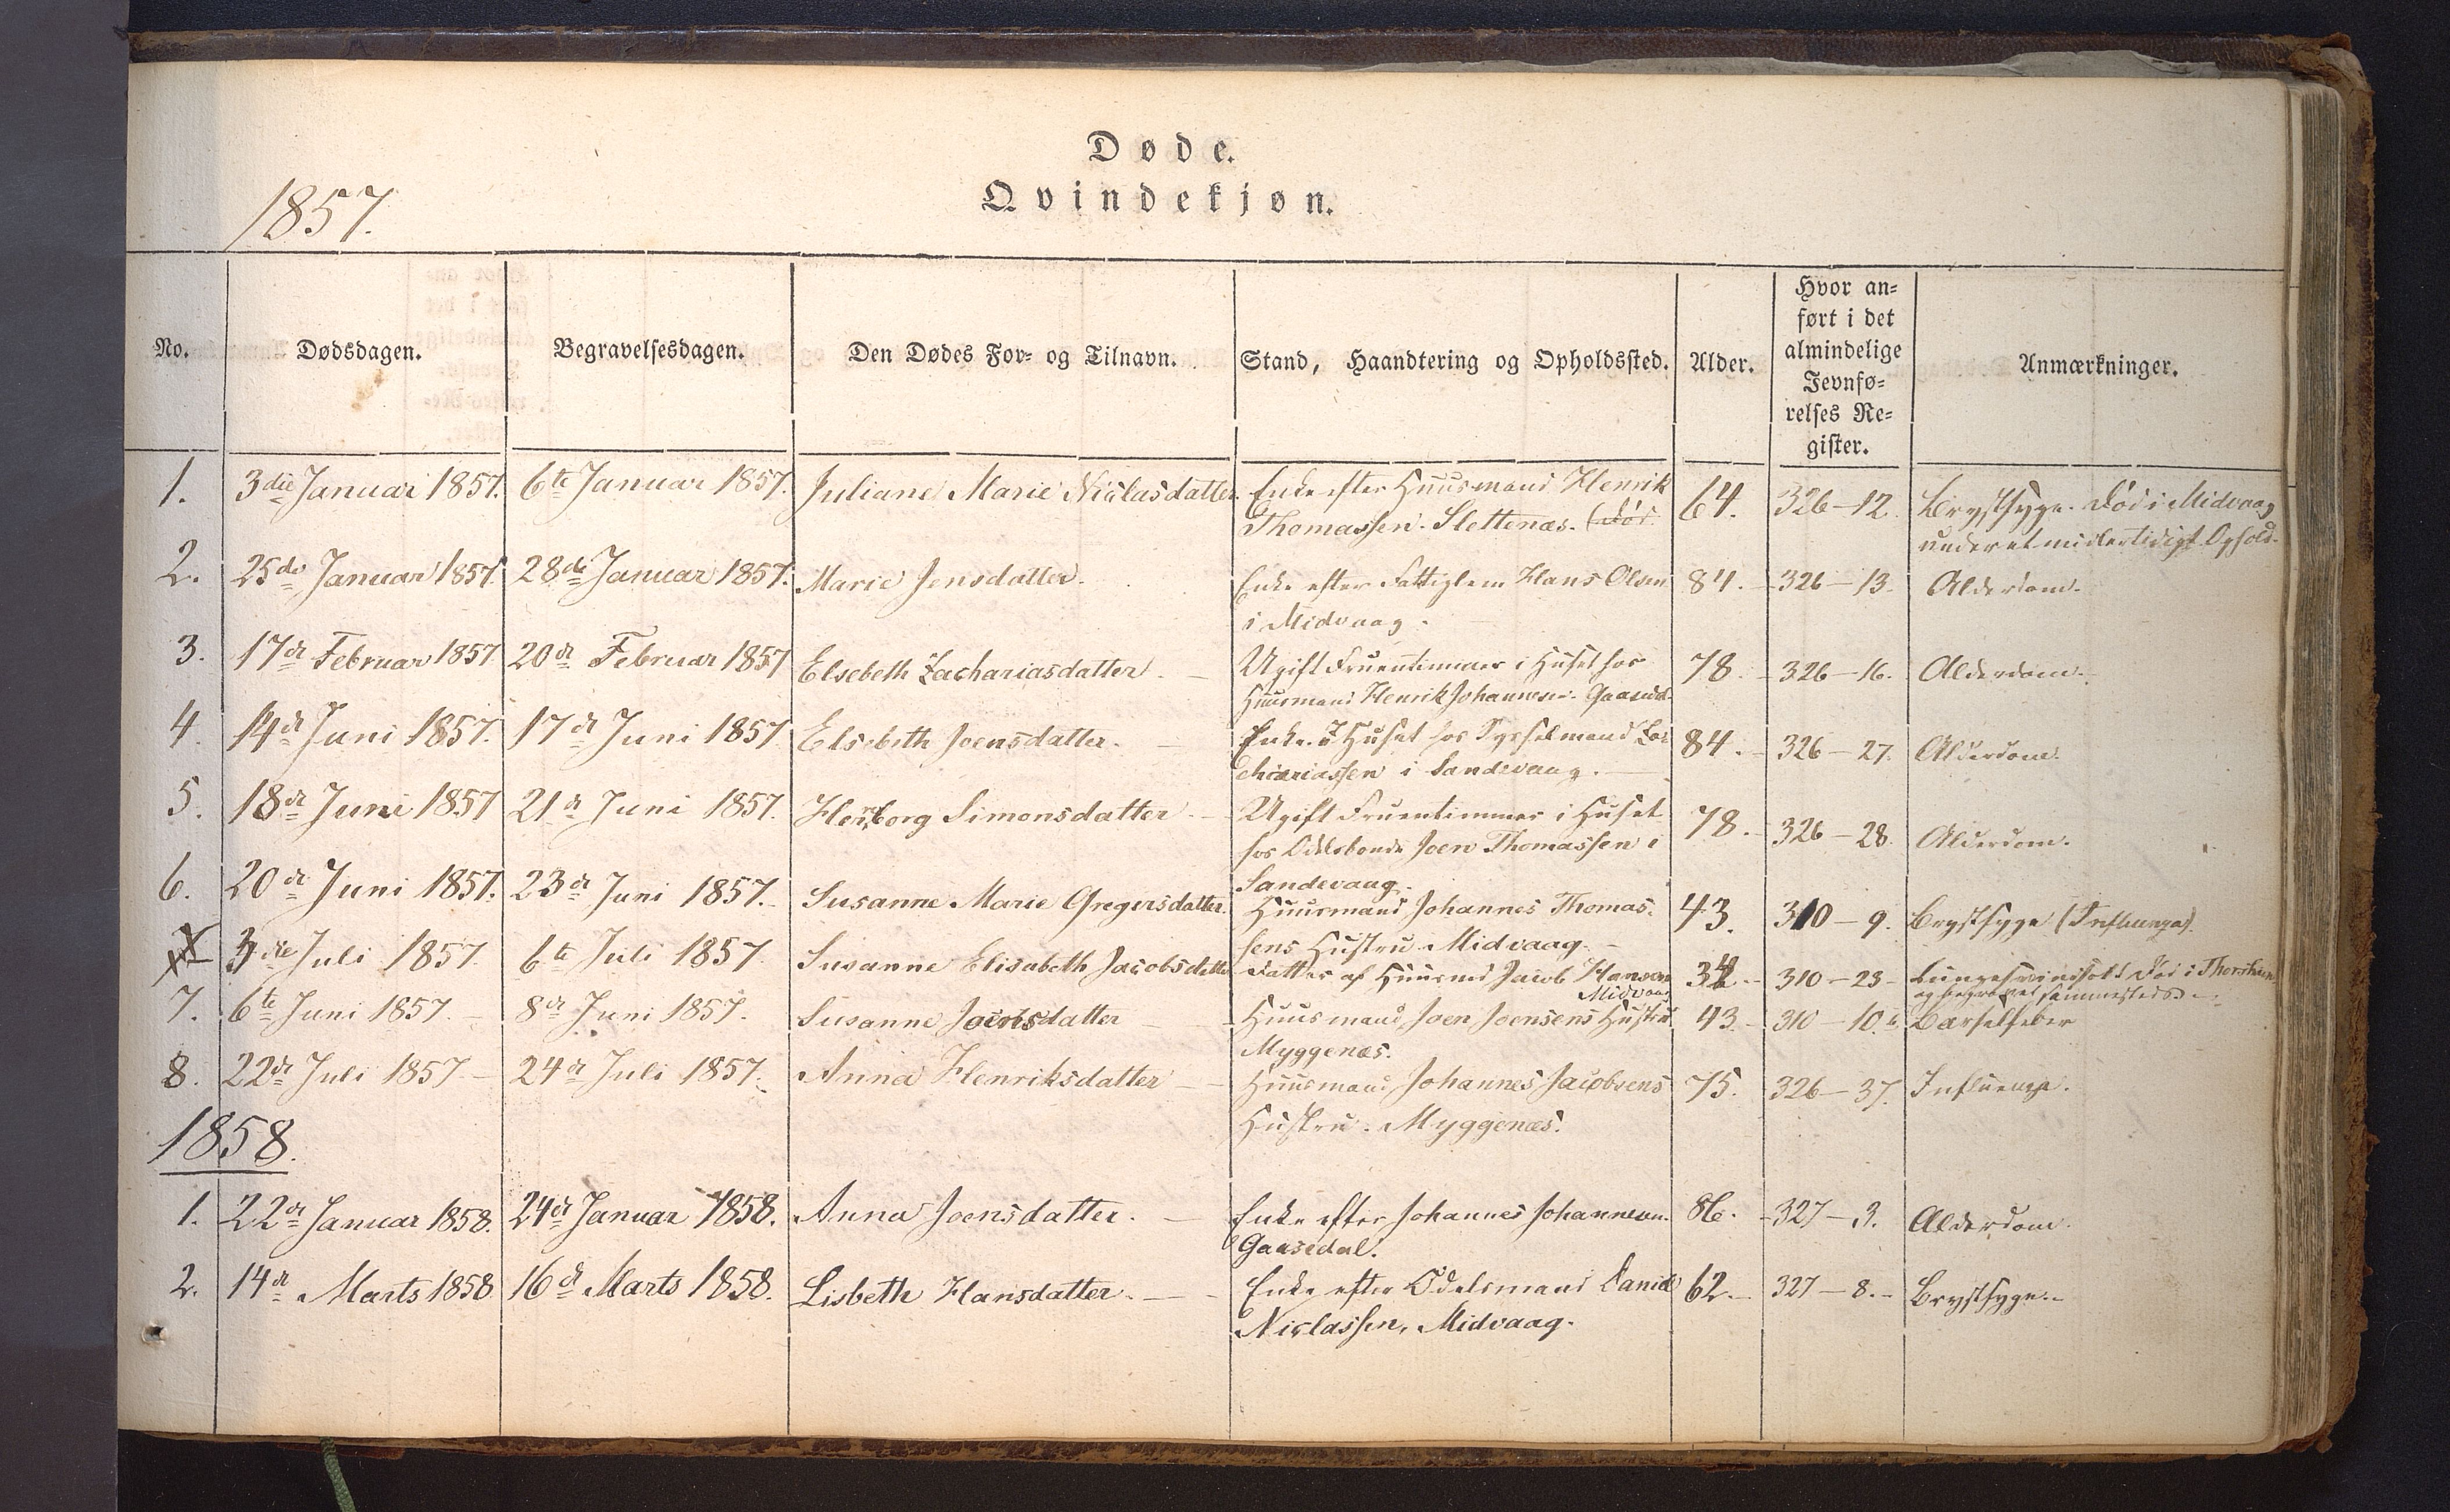 Døde.
Qvindekjøn.
1857.
No.
Dødsdagen.
Begravelsesdagen.
Den Dødes For- og Tilnavn.
Stand, Haandtering og Opholdssted.
Alder.
Hvor an-
ført i det
almindelige
Jevnfø-
relses Re-
gister.
Anmærkninger.
1. 3die Januar 1857. 6te Januar 1857. Juliane Marie Niclasdatter. Enke efter Huusmand Henrik 64. 326-12. Brystsyge. Død i Midvaag
Thomassen. Slettenæs. (Død under et midlertidigt Ophold.
2. 25de Januar 1857. 28de Januar 1857. Marie Jensdatter. Enke efter Fattiglem Hans Olsen 84. 326-13. Alderdom.
i Midvaag.
3. 17de Februar 1857. 20de Februar 1857 Elsebeth Zachariasdatter. Ugift Fruentimmer i Huset hos 78. 326-16. Alderdom.
Huusmand Henrik Johannesen. Gaasedal.
4. 14de Juni 1857. 17de Juni 1857 Elsebeth Joensdatter. Enke. I Huset hos Sysselmand Za- 84. 326-27. Alderdom.
chariassen i Sandevaag.
5. 18de Juni 1857 21de Juni 1857. Herborg Simonsdatter. Ugift Fruentimmer i Huset 78. 326-28. Alderdom.
hos Odelsbonde Joen Thomassen i
Sandevaag.
6. 20de Juni 1857. 23de Juni 1857. Susanne Marie Gregersdatter. Huusmand Johannes Thomas- 43. 310-9. Brystsyge (Influenza).
sens Hustru. Midvaag.
3die Juli 1857. 6te Juli 1857. Susanne Elisabeth Jacobsdatter Datter af Huusmd Jacob Hansen 310-23 Lungesvindsot. Død i Thorshavn
Midvaag og begravet sammesteds.
7. 6te Juni 1857. 8de Juni 1857. Susanne Joensdatter Huusmand Joen Joensens Hustru 43. 310-10. Barselfeber
Myggenæs.
8. 22de Juli 1857 24de Juli 1857. Anna Henriksdatter Huusmand Johannes Jacobsens 75. 326-37. Influenza.
Hustru. Myggenæs.
1858.
1. 22de Januar 1858. 24de Januar 1858. Anna Joensdatter. Enke efter Johannes Johannesen. 86. 327-3. Alderdom.
Gaasedal.
2. 14de Marts 1858 16de Marts 1858. Lisbeth Hansdatter. Enke efter Odelsmand Daniel 62. 327-8. Brystsyge.
Niclassen, Midvaag.